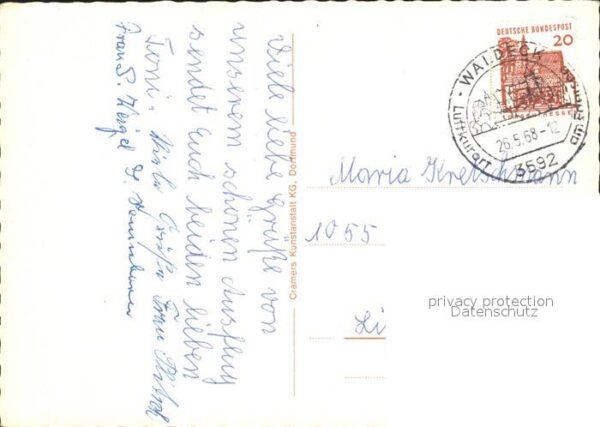 Viele liebe Grüße von
unserem schönen Ausflug
sendet Euch beiden lieben
Toni. Viele Grüße Frau
Frau
Cramers Kunstanstalt KG, Dortmund
DEUTSCHE BUNDESPOST
20
WALDECK
Luftkurort
am Edersee
26.5.68-12
3592
Maria Kretschmann
1055
privacy protection
Datenschutz